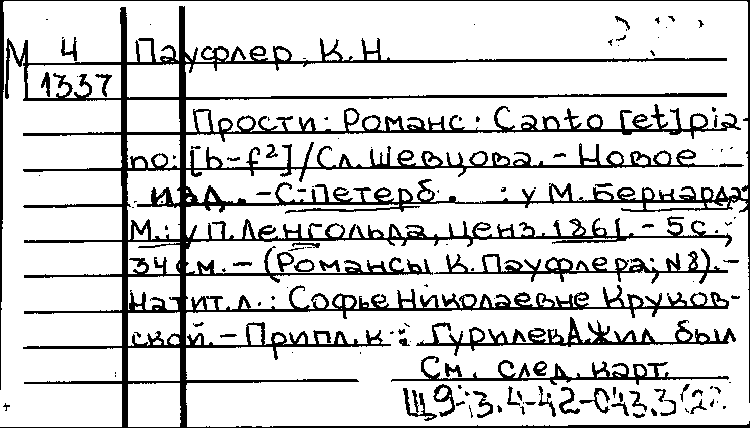 М 4 Пауфлер, К.Н.
1337
Прости: Романс: Canto [et] pia-
no: [b-f²]/Сл. Шевцова. - Новое
изд. - С.-Петерб. : у М. Бернарда;
М.: у П. Ленгольда, ценз. 1861. - 5 с.;
34 см. - (Романсы К. Пауфлера; №8). -
На тит. л.: Софье Николаевне Круков-
ской. - Припл. к : Гурилев А. Жил был
См. след. карт.
Щ9-3.4-42-043.3